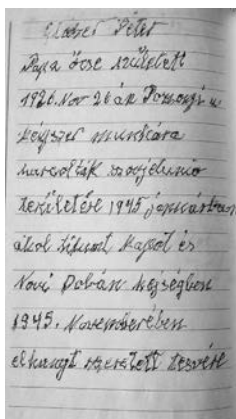 Péter
Papa öcse született
1926. Nov 20 án
kényszer munkára
szovjetunio
területére 1945 januárban
ahol tifuszt kapot és
Novi községben
1945. Novemberében
elhunyt szeretett tesvére